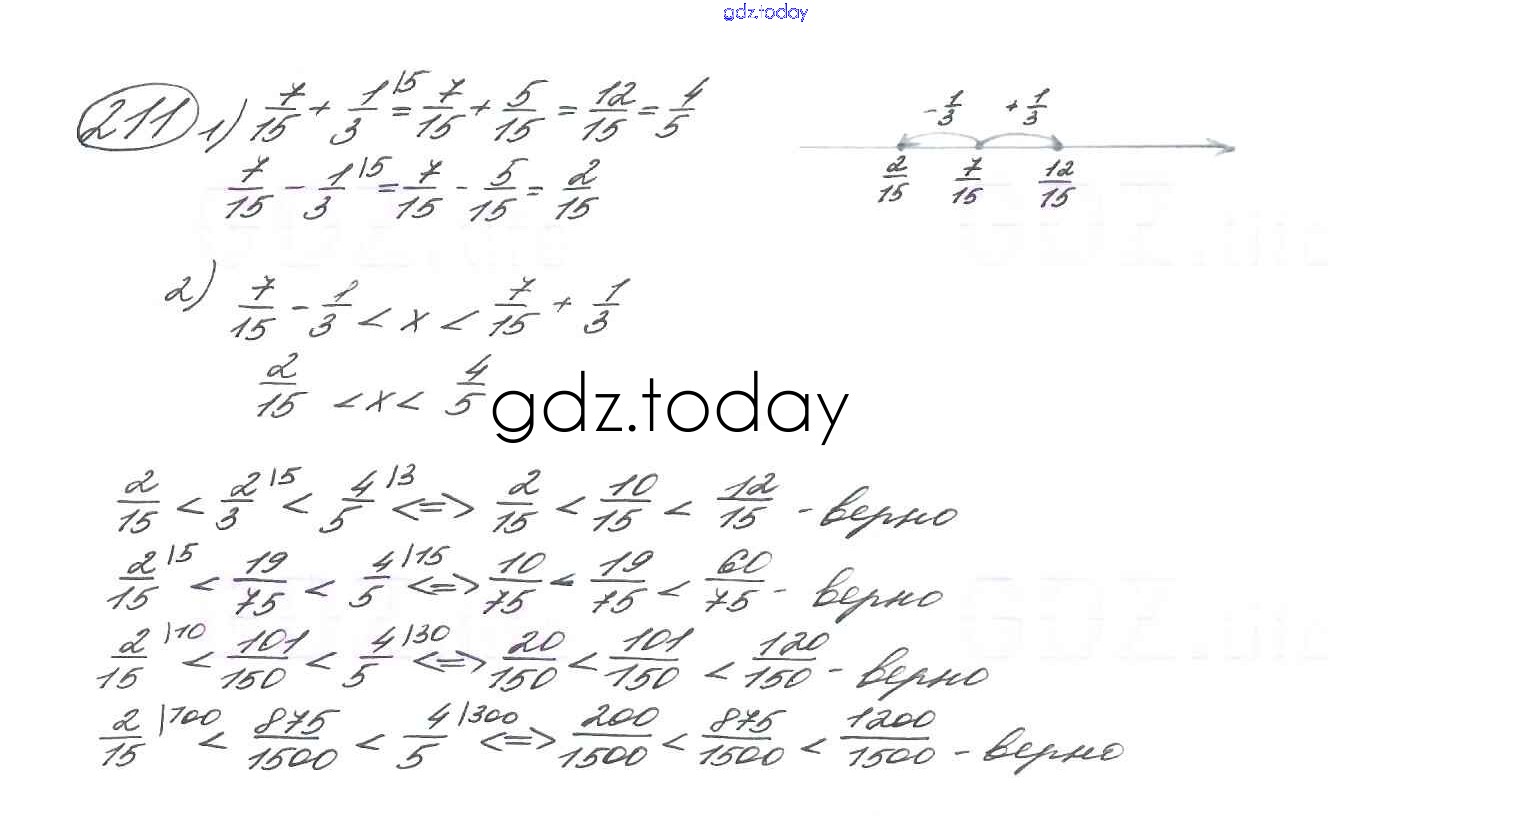 gdz.today
211 1) 7/15 + 1/3 |5 = 7/15 + 5/15 = 12/15 = 4/5
-1/3 +1/3
7/15 - 1/3 |5 = 7/15 - 5/15 = 2/15
2/15 7/15 12/15
2) 7/15 - 1/3 < x < 7/15 + 1/3
2/15 < x < 4/5
gdz.today
2/15 < 2/3 |5 < 4/5 |3 <=> 2/15 < 10/15 < 12/15 - верно
2/15 |5 < 19/75 < 4/5 |15 <=> 10/75 < 19/75 < 60/75 - верно
2/15 |10 < 101/150 < 4/5 |30 <=> 20/150 < 101/150 < 120/150 - верно
2/15 |100 < 875/1500 < 4/5 |300 <=> 200/1500 < 875/1500 < 1200/1500 - верно